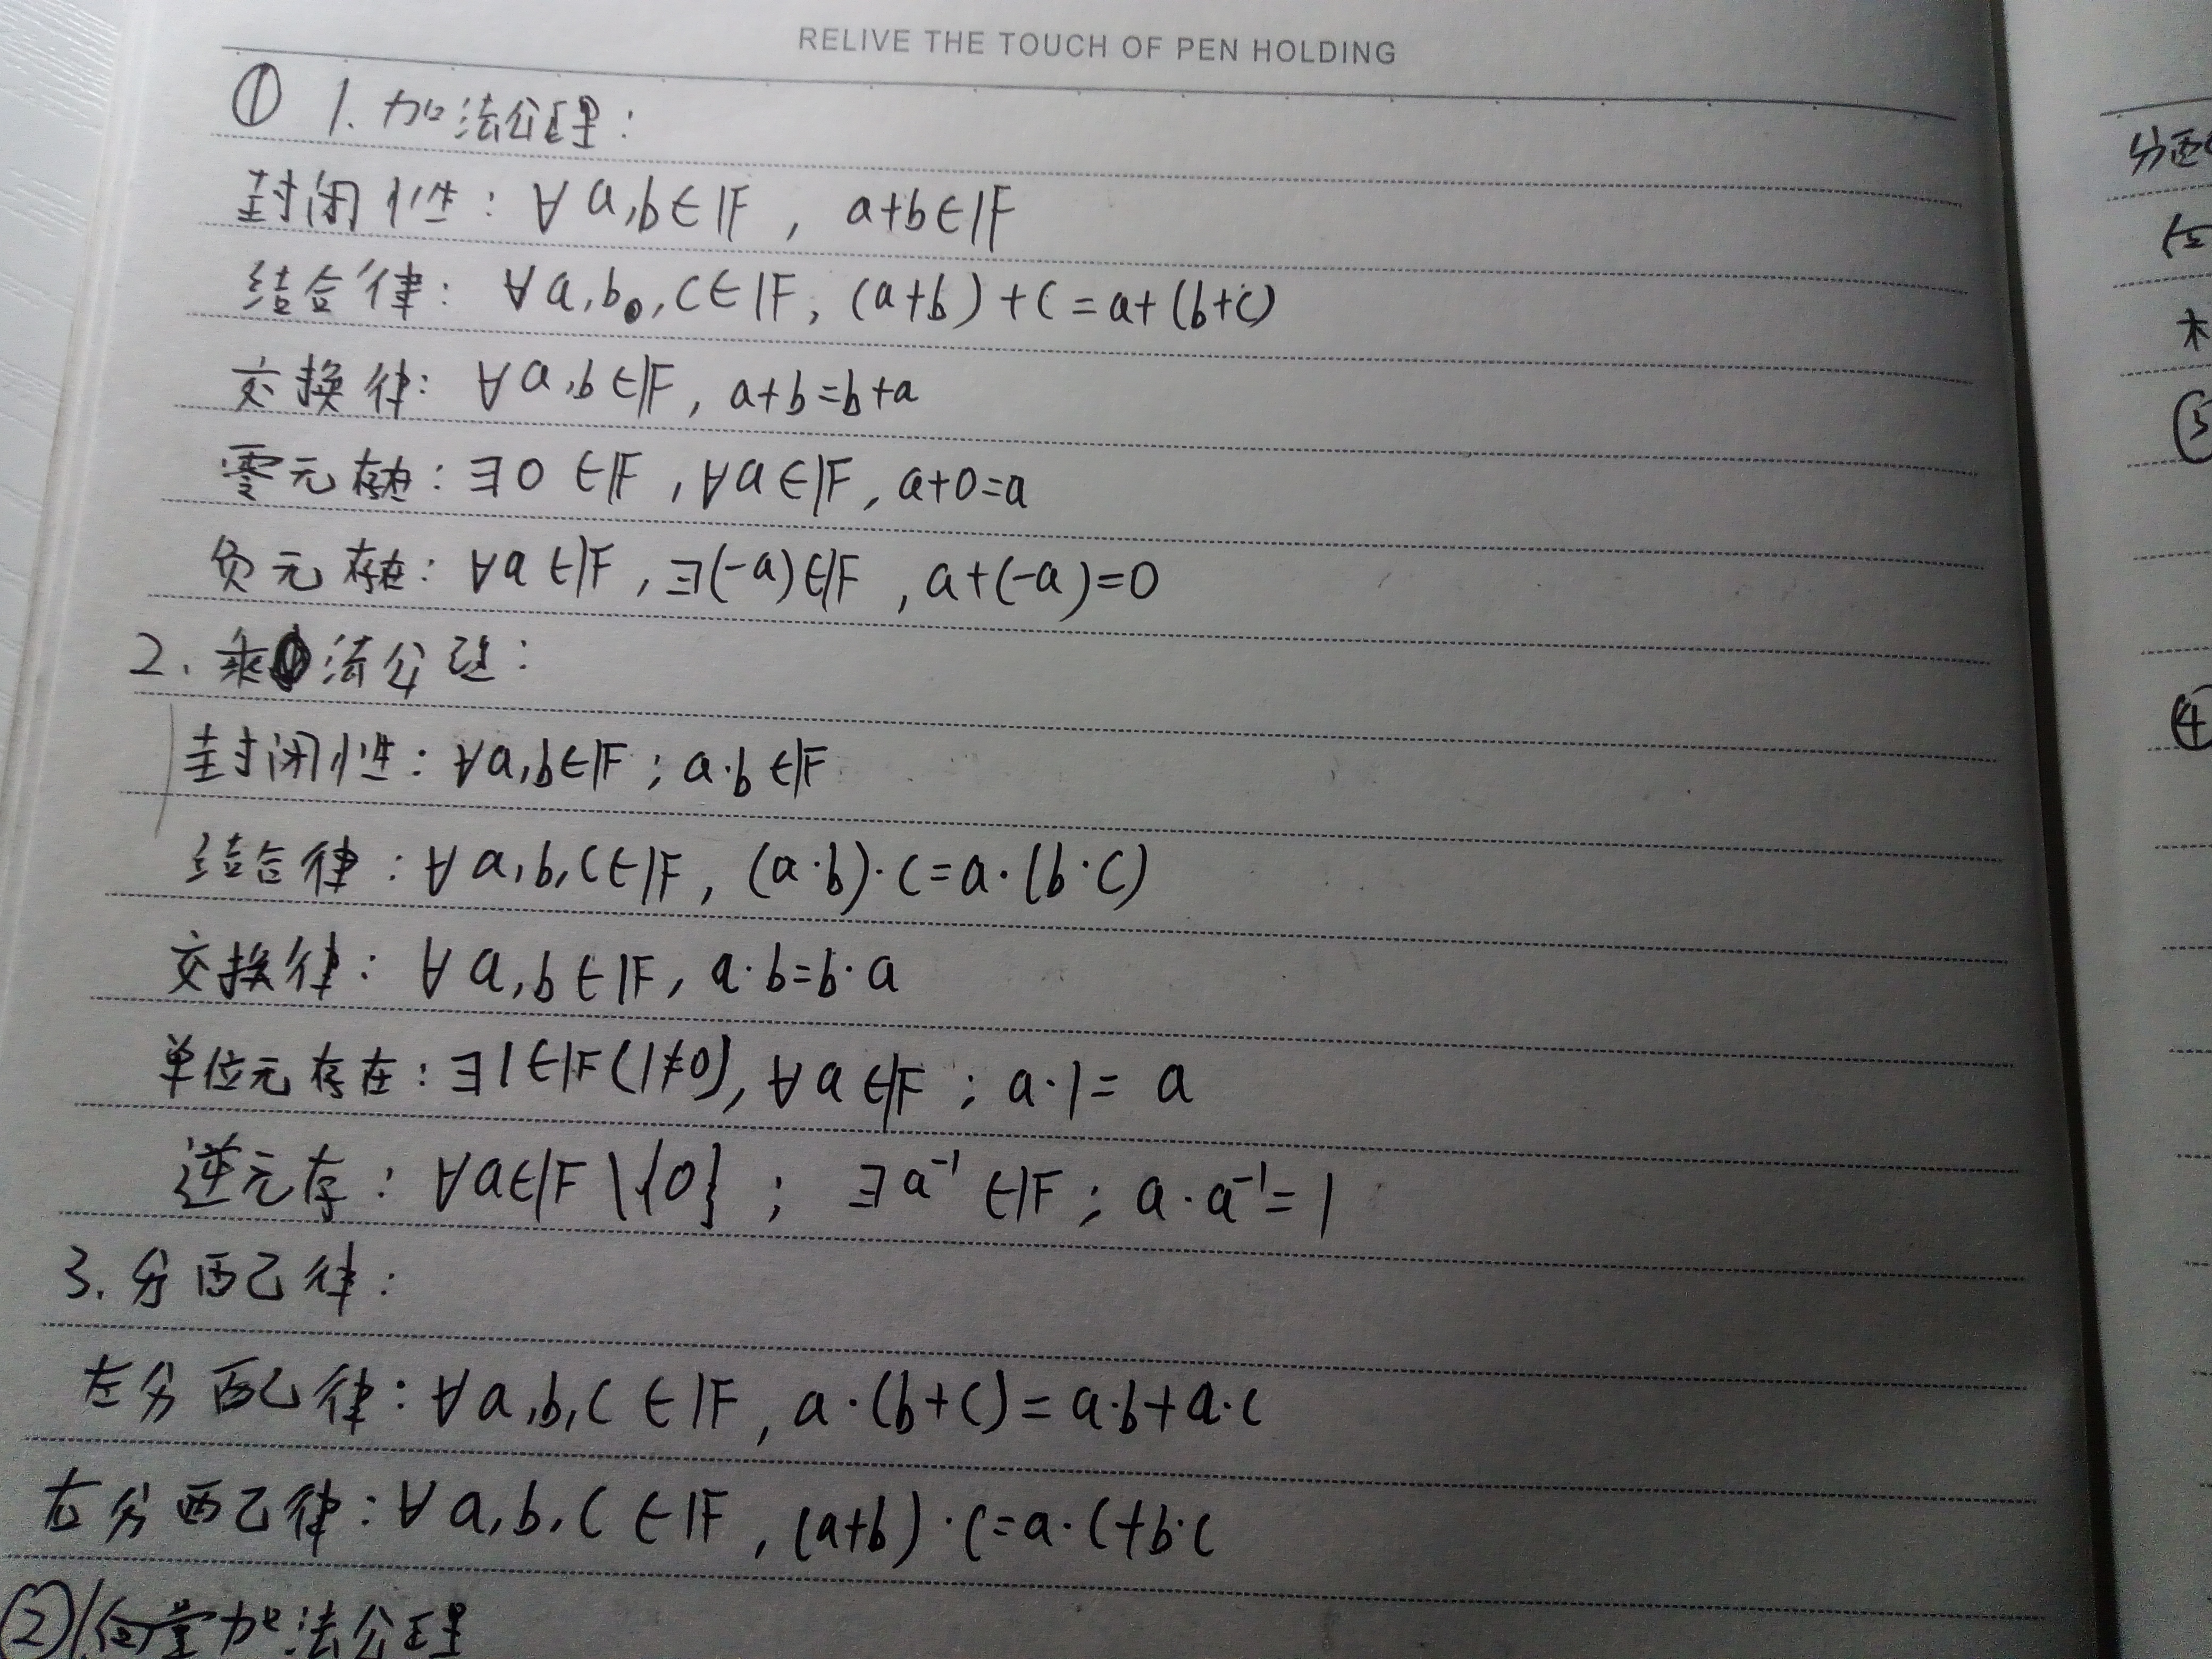 RELIVE THE TOUCH OF PEN HOLDING
① 1. 加法公理:
封闭性: ∀a,b∈𝔽, a+b∈𝔽
结合律: ∀a,b,c∈𝔽, (a+b)+c=a+(b+c)
交换律: ∀a,b∈𝔽, a+b=b+a
零元存在: ∃0∈𝔽, ∀a∈𝔽, a+0=a
负元存在: ∀a∈𝔽, ∃(-a)∈𝔽, a+(-a)=0
2. 乘法公理:
封闭性: ∀a,b∈𝔽; a·b∈𝔽
结合律: ∀a,b,c∈𝔽, (a·b)·c=a·(b·c)
交换律: ∀a,b∈𝔽, a·b=b·a
单位元存在: ∃1∈𝔽(1≠0), ∀a∈𝔽; a·1=a
逆元存: ∀a∈𝔽\{0}; ∃a⁻¹∈𝔽; a·a⁻¹=1
3. 分配律:
左分配律: ∀a,b,c∈𝔽, a·(b+c)=a·b+a·c
右分配律: ∀a,b,c∈𝔽, (a+b)·c=a·c+b·c
② 向量加法公理
分配
④